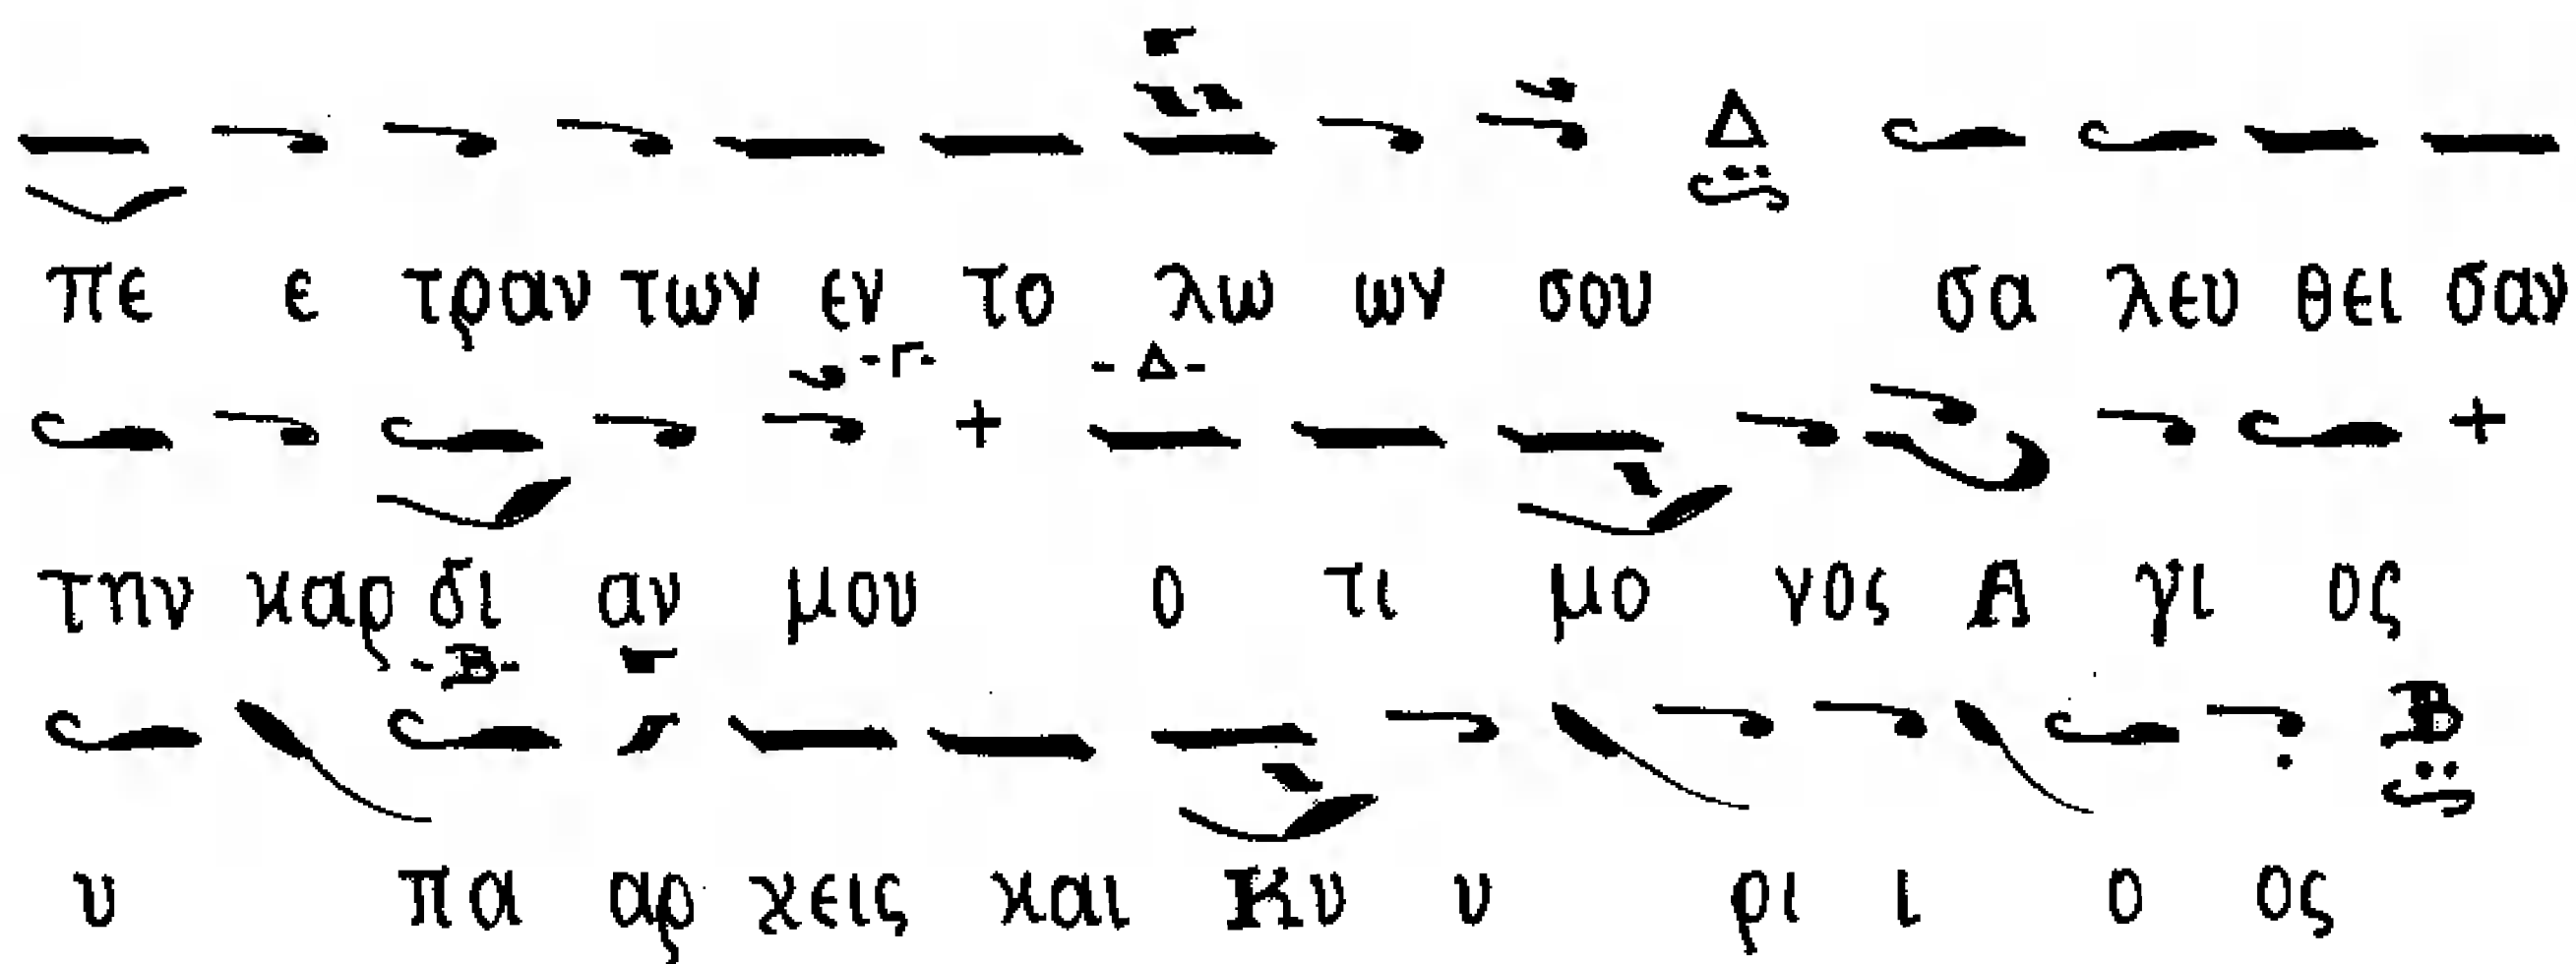 Δ
πε ε τραν των εν το λω ων σου σα λευ θει σαν
-Γ- -Δ-
την καρ δι αν μου ο τι μο νος Α γι ος
-Β- Β
υ πα αρ χεις και Κυ υ ρι ι ο ος